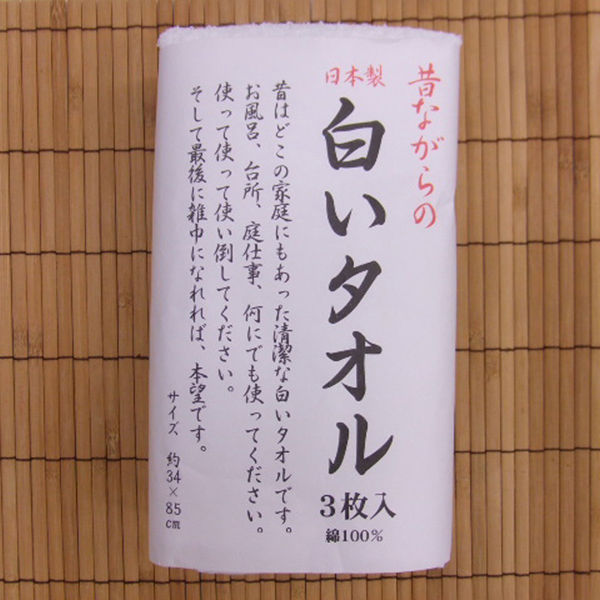 昔ながらの
日本製
白いタオル
3枚入
綿100%
昔はどこの家庭にもあった清潔な白いタオルです。
お風呂、台所、庭仕事、何にでも使ってください。
使って使って使い倒してください。
そして最後に雑巾になれれば、本望です。
サイズ 約34×85cm